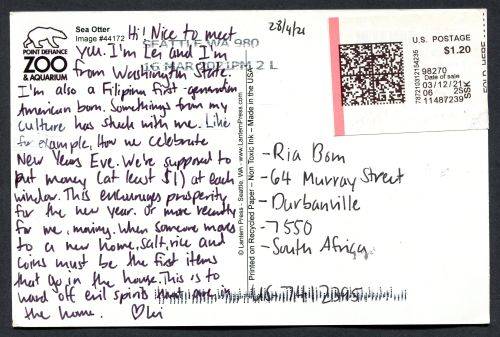 Sea Otter
Image #44172
POINT DEFIANCE
ZOO
& AQUARIUM
Hi! Nice to meet
you. I'm Lei and I'm
from Washington State.
I'm also a Filipina first-generation
American born. Somethings from my
culture has stuck with me. Like
for example, How we celebrate
New Years Eve. We're supposed to
put money (at least $1) at each
window. This encourages prosperity
for the new year. Or more recently
for me, moving. When someone moves
to a new home, salt, rice and
coins must be the first items
that go in the house. This is to
ward off evil spirits that are in
the home. ♡Lei
SEATTLE WA 980
16 MAR 2021 PM 2 L
28/4/21
© www.LanternPress.com - Seattle, WA
Printed on Recycled Paper - Non Toxic Ink - Made in the USA
U.S. POSTAGE
$1.20
98270
Date of sale
03/12/21
06 2S
11487239
SSK
-Ria Bom
-64 Murray Street
-Durbanville
-7550
-South Africa
US 7141 2395